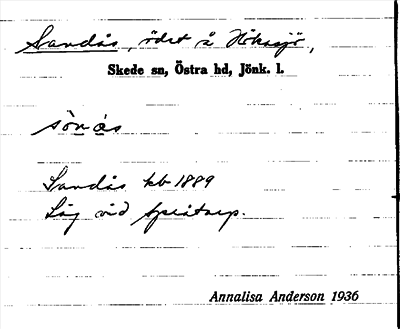 Sandås, ödet å Höksjö,
Skede sn, Östra hd, Jönk. l.
sönås
Sandås kb 1889
Låg vid
Annalisa Anderson 1936